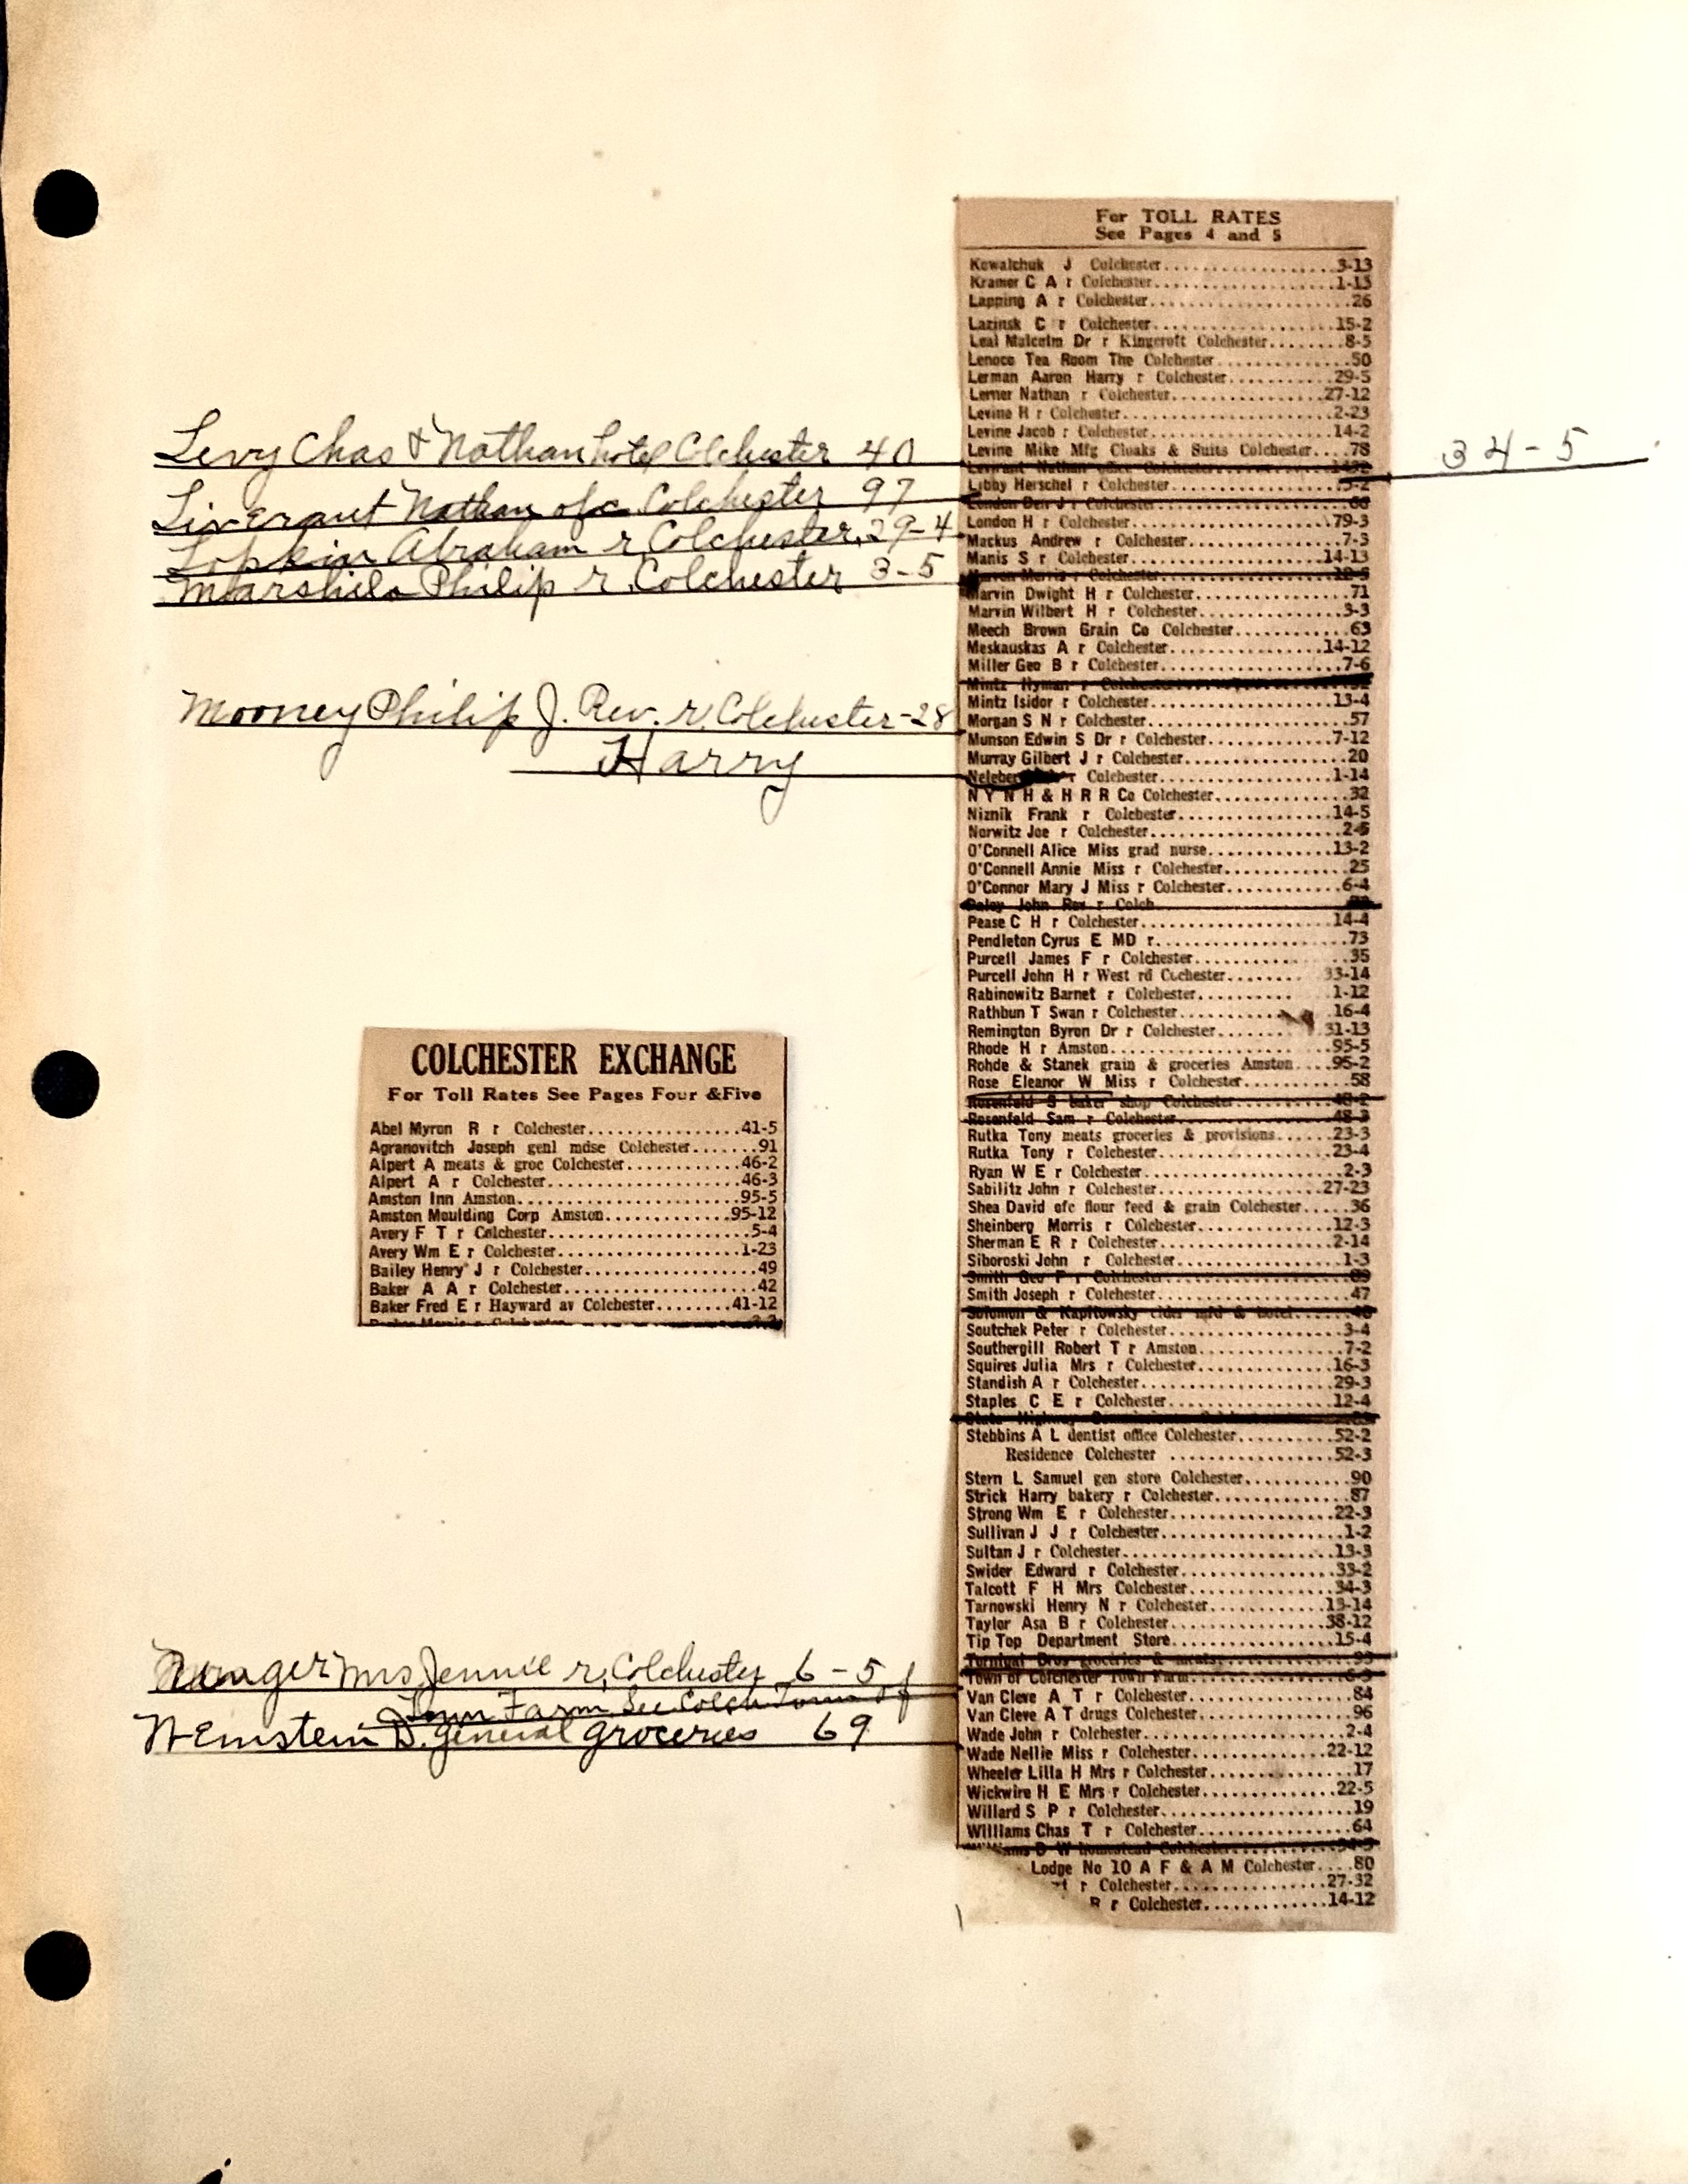 Levy Chas & Nathan hotel Colchester 40
Liverant Nathan ofc Colchester 97
Lopkin Abraham r. Colchester. 29-4
Philip r. Colchester 3-5
Mooney Philip J. Rev. r. Colchester-28
Harry
COLCHESTER EXCHANGE
For Toll Rates See Pages Four &Five
Abel Myron R r Colchester................41-5
Agranovitch Joseph genl mdse Colchester.......91
Alpert A meats & groc Colchester............46-2
Alpert A r Colchester....................46-3
Amston Inn Amston.......................95-5
Amston Moulding Corp Amston.............95-12
Avery F T r Colchester.....................5-4
Avery Wm E r Colchester..................1-23
Bailey Henry J r Colchester.................49
Baker A A r Colchester.....................42
Baker Fred E r Hayward av Colchester........41-12
Mrs Jennie r. Colchester 6-5
Town Farm See Colch Town of
D. general groceries 69
For TOLL RATES
See Pages 4 and 5
Kowalchuk J Colchester...................3-13
Kramer C A r Colchester..................1-15
Lapping A r Colchester.....................26
Lazinsk C r Colchester...................15-2
Leal Malcolm Dr r Kingcroft Colchester........8-5
Lenoco Tea Room The Colchester..............50
Lerman Aaron Harry r Colchester............29-5
Lerner Nathan r Colchester................27-12
Levine H r Colchester.....................2-23
Levine Jacob r Colchester.................14-2
Levine Mike Mfg Cloaks & Suits Colchester....78
34-5
Libby Herschel r Colchester
London H r Colchester....................79-3
Mackus Andrew r Colchester................7-3
Manis S r Colchester.....................14-13
Marvin Dwight H r Colchester................71
Marvin Wilbert H r Colchester...............3-3
Meech Brown Grain Co Colchester............63
Meskauskas A r Colchester................14-12
Miller Geo B r Colchester...................7-6
Mintz Hyman r Colchester
Mintz Isidor r Colchester..................13-4
Morgan S N r Colchester....................57
Munson Edwin S Dr r Colchester............7-12
Murray Gilbert J r Colchester................20
r Colchester....................1-14
N Y N H & H R R Co Colchester..............32
Niznik Frank r Colchester.................14-5
Norwitz Joe r Colchester...................2-5
O'Connell Alice Miss grad nurse.............13-2
O'Connell Annie Miss r Colchester............25
O'Connor Mary J Miss r Colchester...........6-4
John Rev r Colch
Pease C H r Colchester...................14-4
Pendleton Cyrus E MD r....................73
Purcell James F r Colchester................35
Purcell John H r West rd Cochester.......33-14
Rabinowitz Barnet r Colchester..........1-12
Rathbun T Swan r Colchester............16-4
Remington Byron Dr r Colchester..........31-13
Rhode H r Amston......................95-5
Rohde & Stanek grain & groceries Amston....95-2
Rose Eleanor W Miss r Colchester............58
Rosenfeld S baker shop Colchester..........48-2
Rosenfeld Sam r Colchester................48-3
Rutka Tony meats groceries & provisions......23-3
Rutka Tony r Colchester..................23-4
Ryan W E r Colchester.....................2-3
Sabilitz John r Colchester................27-23
Shea David ofc flour feed & grain Colchester.....36
Sheinberg Morris r Colchester.............12-3
Sherman E R r Colchester.................2-14
Siboroski John r Colchester................1-3
Smith Geo F r Colchester
Smith Joseph r Colchester...................47
Solomon & Kapitowsky cider mfd & hotel
Soutchek Peter r Colchester................3-4
Southergill Robert T r Amston..............7-2
Squires Julia Mrs r Colchester.............16-3
Standish A r Colchester...................29-3
Staples C E r Colchester..................12-4
State Highway
Stebbins A L dentist office Colchester........52-2
Residence Colchester ..................52-3
Stern L Samuel gen store Colchester..........90
Strick Harry bakery r Colchester.............87
Strong Wm E r Colchester.................22-3
Sullivan J J r Colchester...................1-2
Sultan J r Colchester.....................13-3
Swider Edward r Colchester...............33-2
Talcott F H Mrs Colchester................34-3
Tarnowski Henry N r Colchester............13-14
Taylor Asa B r Colchester................38-12
Tip Top Department Store.................15-4
Bros groceries & meats
Town of Colchester Town Farm
Van Cleve A T r Colchester..................84
Van Cleve A T drugs Colchester..............96
Wade John r Colchester....................2-4
Wade Nellie Miss r Colchester.............22-12
Wheeler Lilla H Mrs r Colchester............17
Wickwire H E Mrs r Colchester.............22-5
Willard S P r Colchester....................19
Williams Chas T r Colchester................64
D W homestead Colchester
Lodge No 10 A F & A M Colchester....80
r Colchester..................27-32
R r Colchester...............14-12